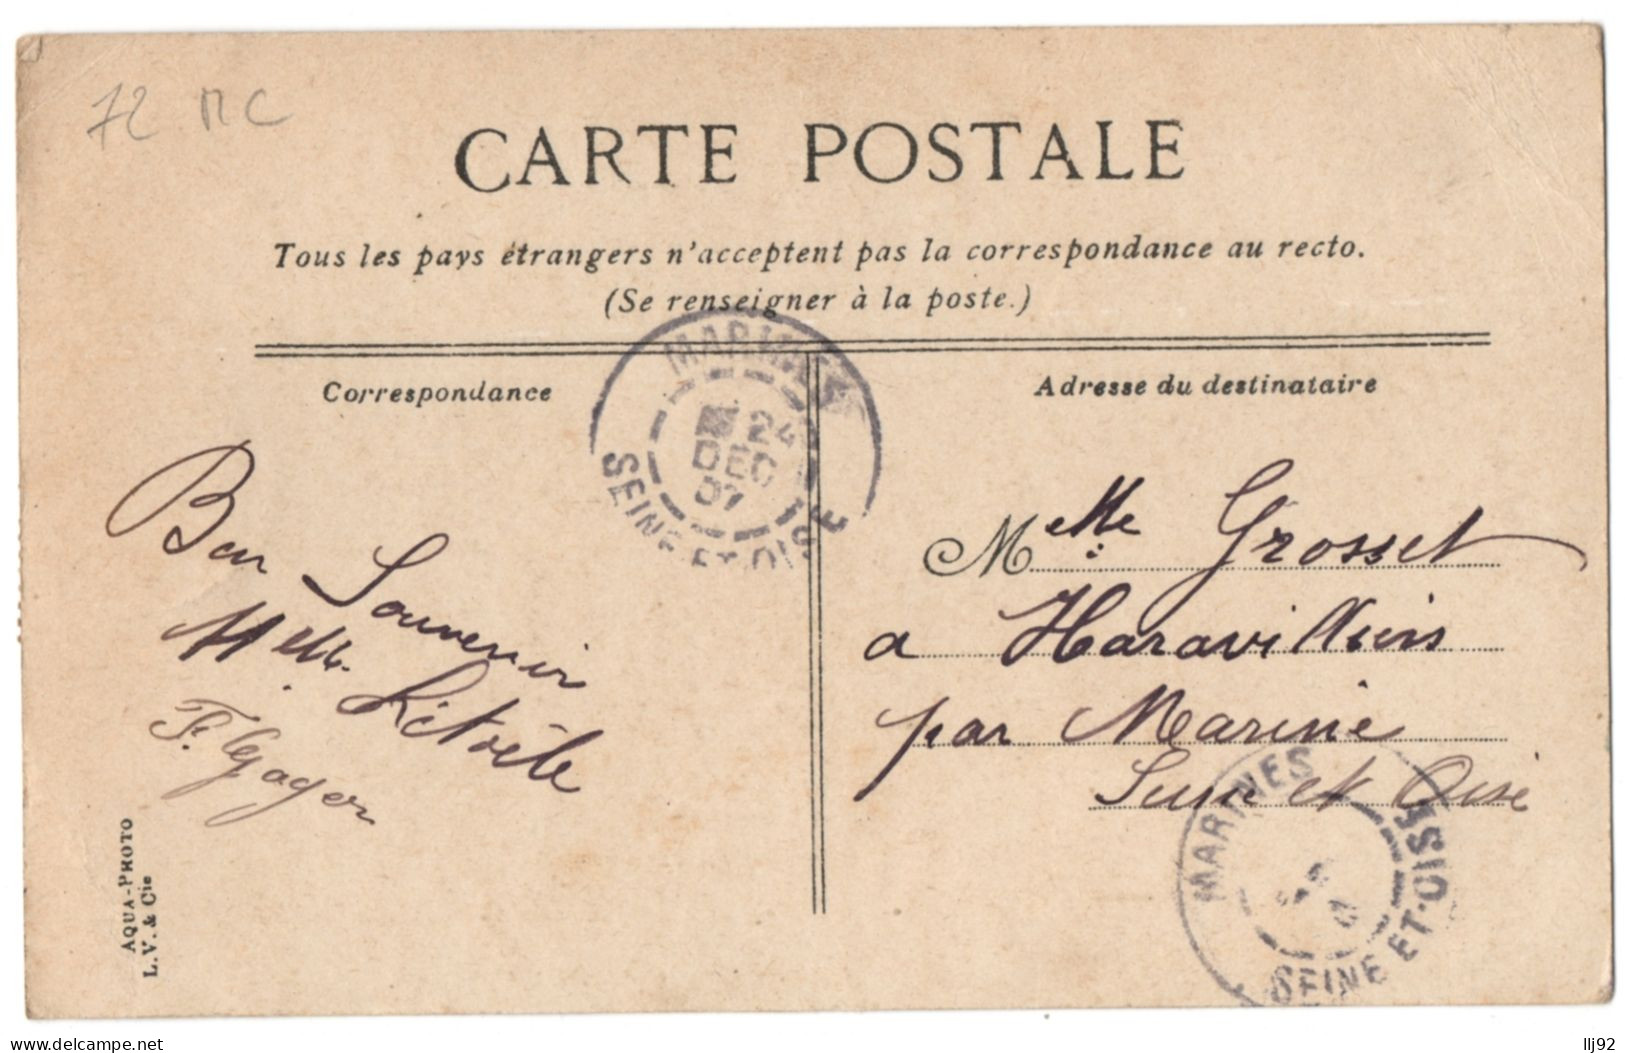 72 MC
CARTE POSTALE
Tous les pays étrangers n'acceptent pas la correspondance au recto.
(Se renseigner à la poste.)
Correspondance
Adresse du destinataire
MARINES
24
DEC
07
SEINE-ET-OISE
Bon Souvenir
Melle
Melle Grosset
a Haravilliers
par Marine
Seine et Oise
MARINES
SEINE-ET-OISE
AQUA-PHOTO
L. V. & Cie
llj92